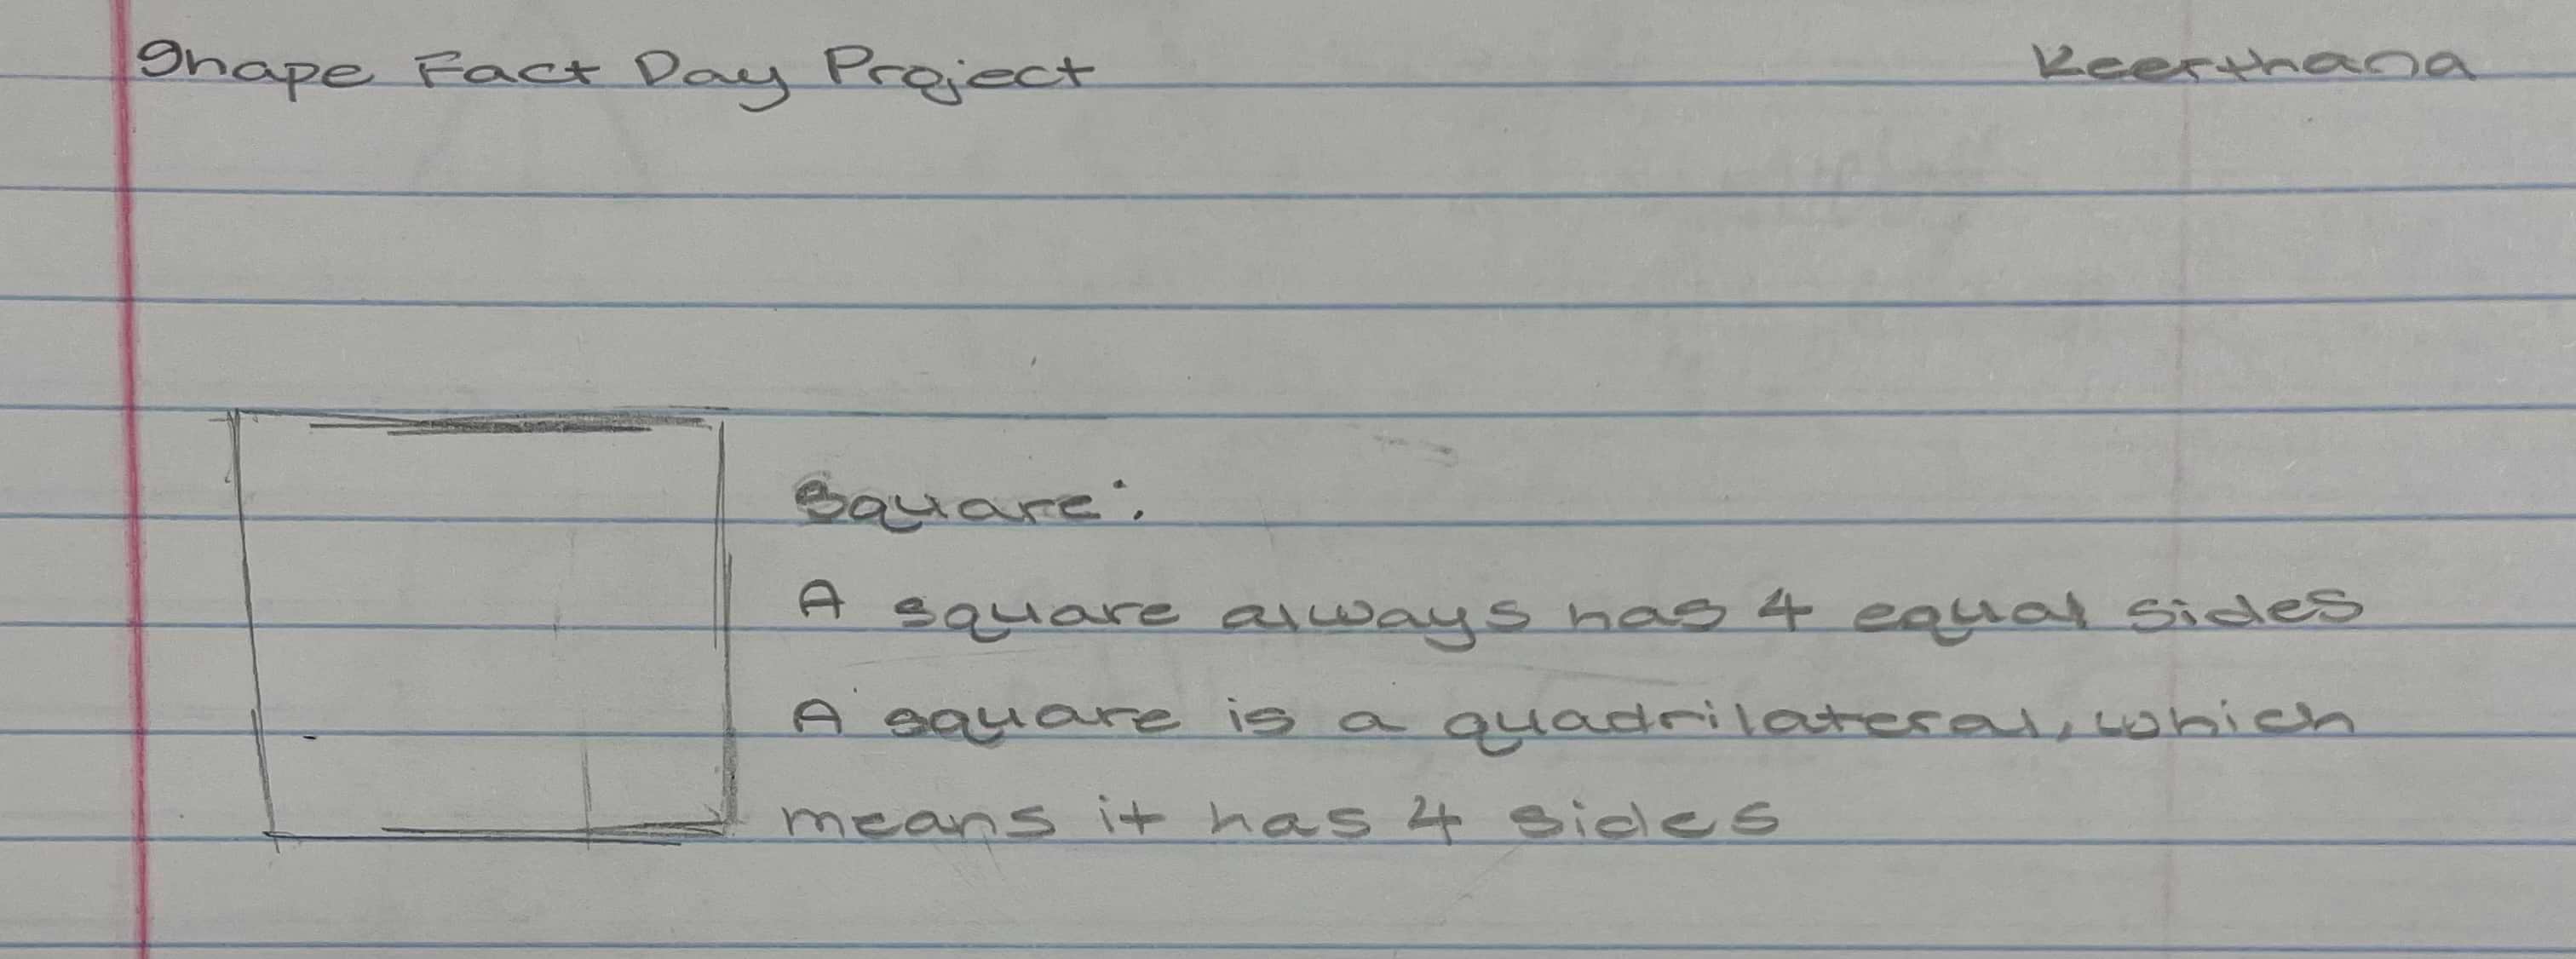 Shape Fact Day Project Keerthana
Square:
A square always has 4 equal sides
A square is a quadrilateral, which
means it has 4 sides